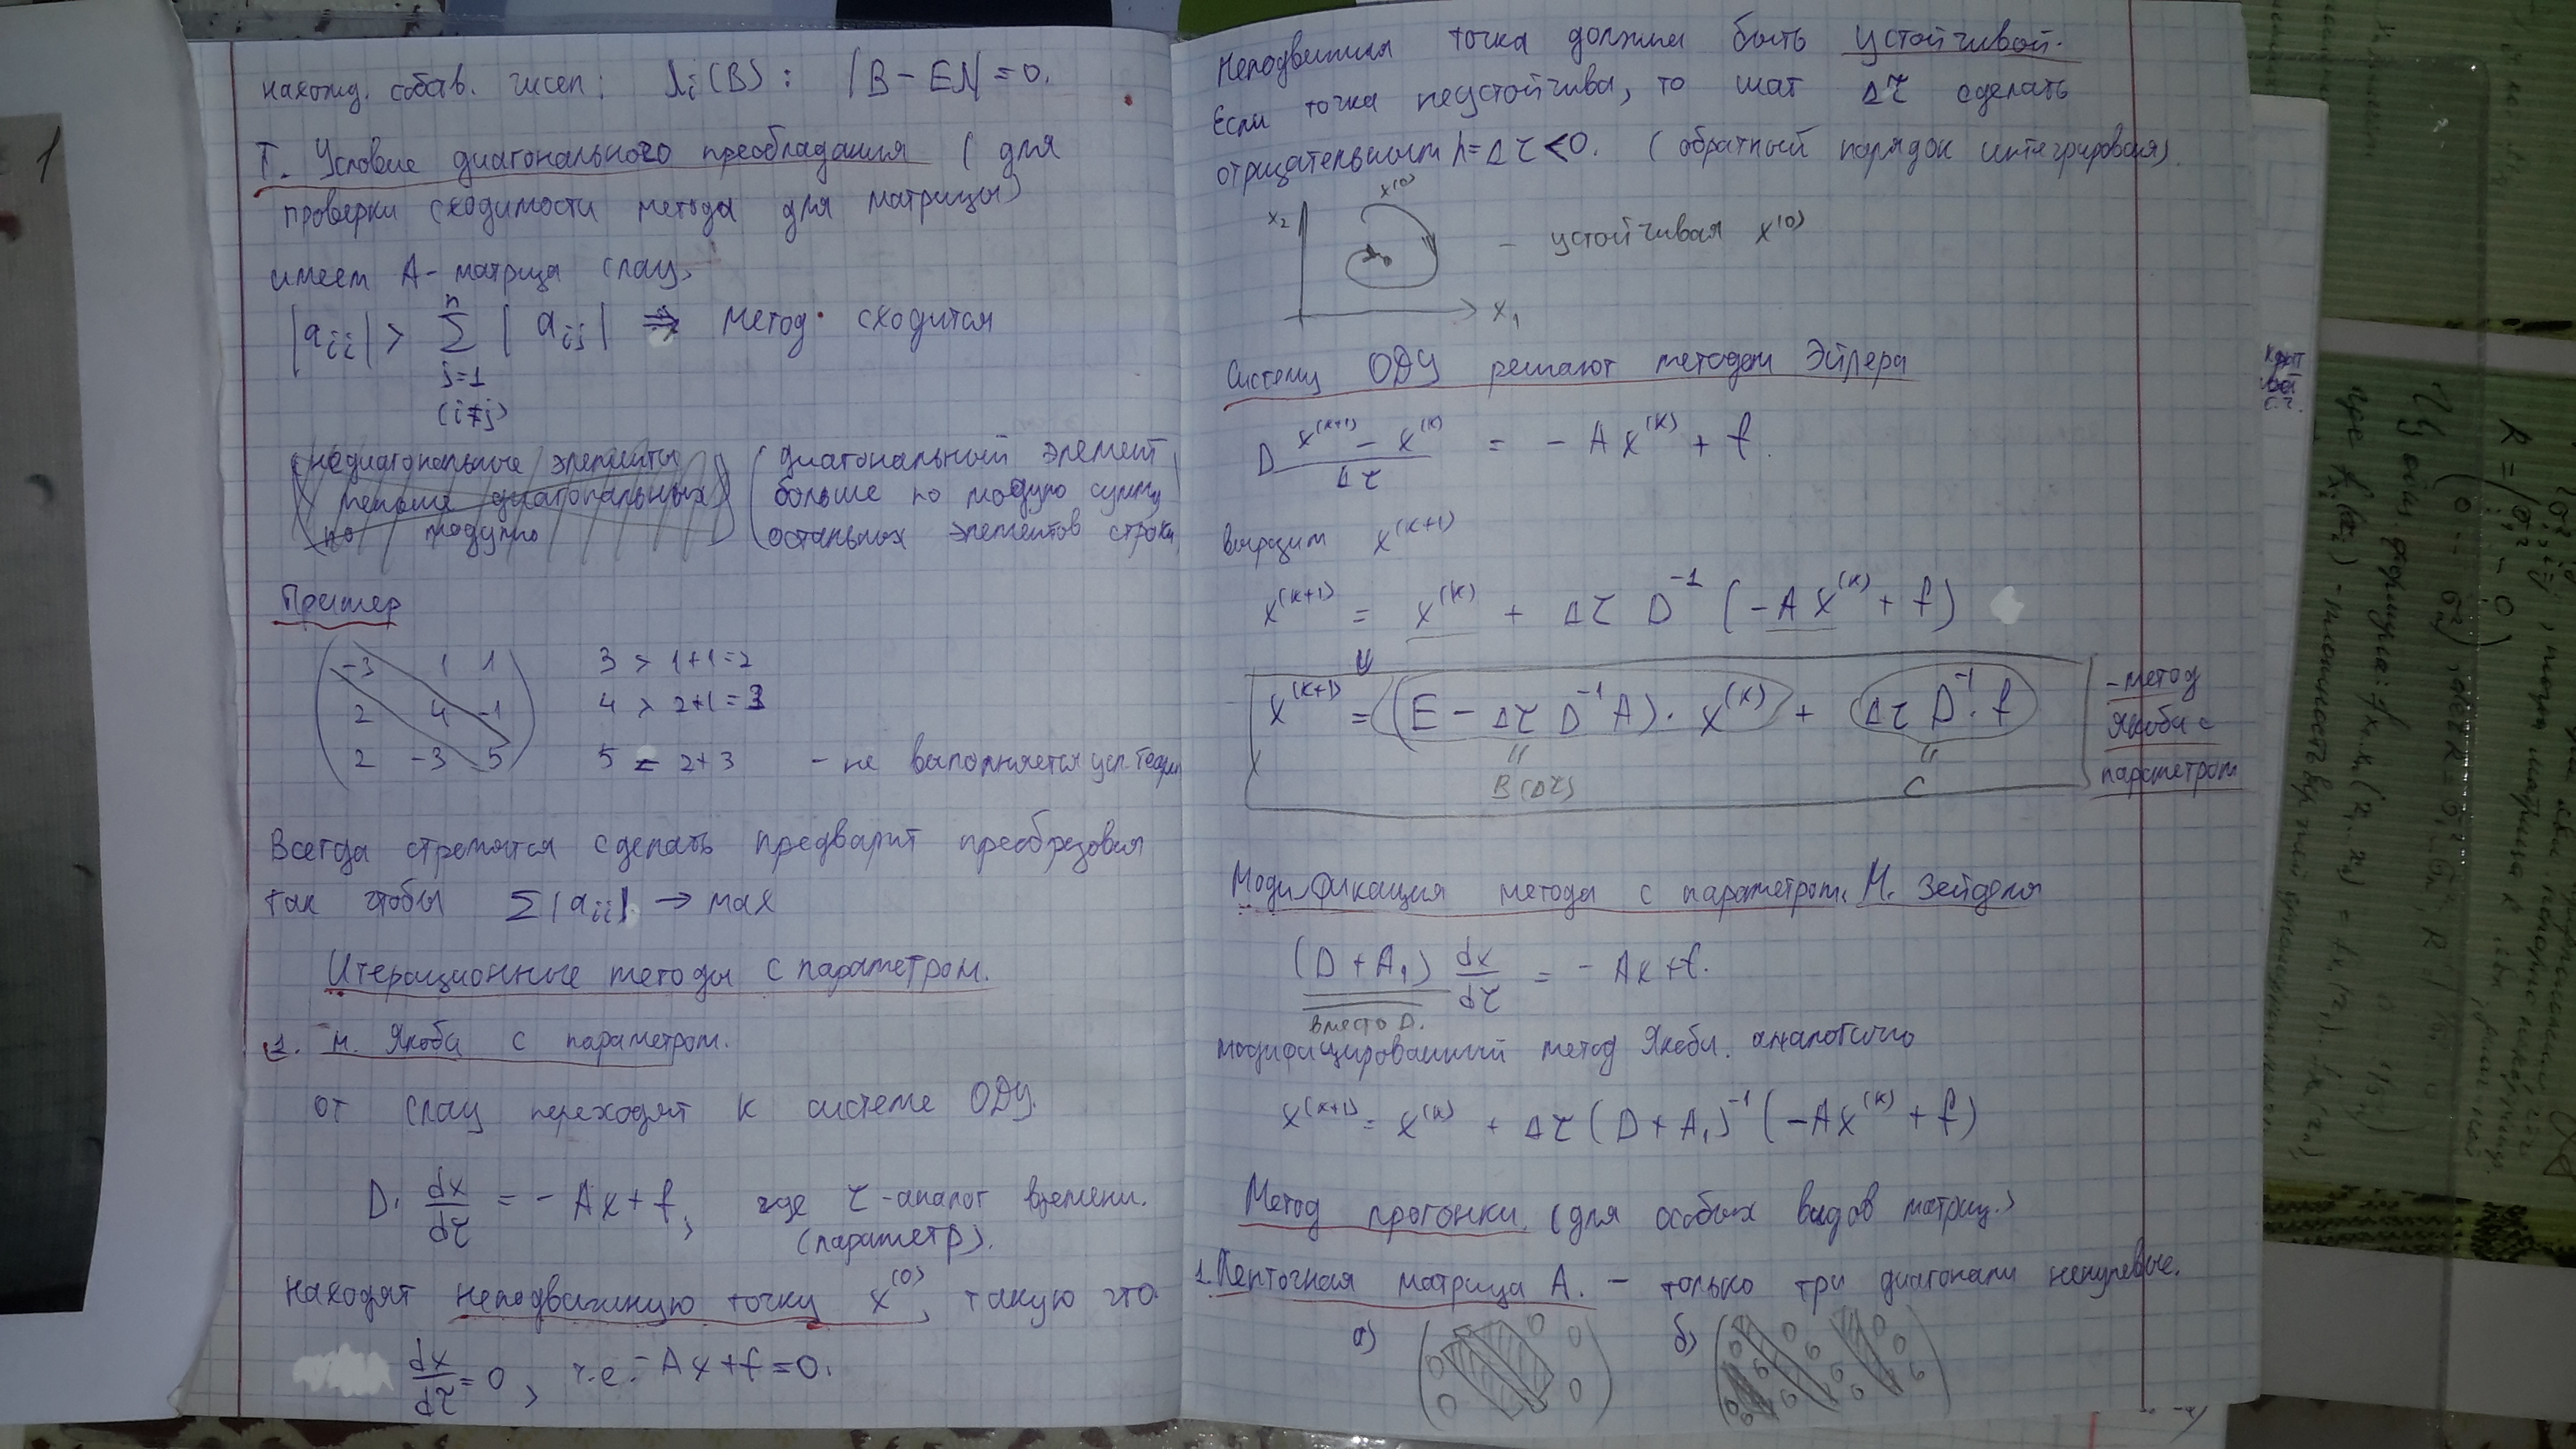 находят собств. чисел: λi(B): |B - Eλ| = 0.
Т. Условие диагонального преобладания (для
проверки сходимости метода для матрицы)
имеем A-матрица СЛАУ,
|aii| > n Σ j=1 (i≠j) |aij| ⇒ метод сходится
(недиагональные элементы (диагональный элемент
меньше диагональных больше по модулю суммы
по модулю остальных элементов строки
Пример
( -3 1 1 3 > 1+1=2
2 4 -1 4 > 2+1=3
2 -3 5 ) 5 = 2+3 - не выполняется усл.
Всегда стремятся сделать предварит преобразован
так чтобы Σ|aii| → max
Итерационные методы с параметром.
1. м. Якоби с параметром.
от СЛАУ переходят к системе ОДУ
D · dx/dτ = - Ax + f, где τ - аналог времени.
(параметр).
Находят неподвижную точку x⁽⁰⁾, такую что
dx/dτ = 0, т.е. - Ax + f = 0.
Неподвижная точка должна быть устойчивой.
Если точка неустойчива, то шаг Δτ сделать
отрицательным h = Δτ < 0. (обратный порядок интегрирования).
x₂ x⁽⁰⁾ - устойчивая x⁽⁰⁾
x₁
Систему ОДУ решают методом Эйлера
D x⁽ᵏ⁺¹⁾ - x⁽ᵏ⁾ / Δτ = - Ax⁽ᵏ⁾ + f.
выразим x⁽ᵏ⁺¹⁾
x⁽ᵏ⁺¹⁾ = x⁽ᵏ⁾ + Δτ D⁻¹ (-Ax⁽ᵏ⁾ + f)
⇓
x⁽ᵏ⁺¹⁾ = (E - Δτ D⁻¹ A) · x⁽ᵏ⁾ + Δτ D⁻¹ · f - метод
Якоби с
параметром
B(Δτ) C
Модификация метода с параметром М. Зейделя
(D + A₁) dx/dτ = - Ax + f.
вместо D.
модифицированный метод Якоби. аналогично
x⁽ᵏ⁺¹⁾ = x⁽ᵏ⁾ + Δτ (D + A₁)⁻¹ (-Ax⁽ᵏ⁾ + f)
Метод прогонки (для особых видов матриц.)
1. Ленточная матрица A. - только три диагонали ненулевые.
а) б)